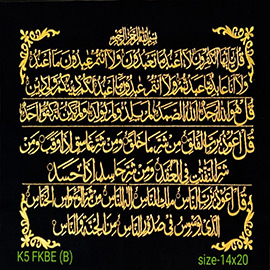 بسم الله الرحمن الرحيم
قل يا أيها الكفرون لا أعبد ما تعبدون ولا أنتم عبدون ما أعبد
ولا أنا عابد ما عبدتم ولا أنتم عبدون ما أعبد لكم دينكم ولي دين
قل هو الله أحد الله الصمد لم يلد ولم يولد ولم يكن له كفوا أحد
قل أعوذ برب الفلق من شر ما خلق ومن شر غاسق إذا وقب ومن
شر النفثت في العقد ومن شر حاسد إذا حسد
قل أعوذ برب الناس ملك الناس إله الناس من شر الوسواس الخناس
الذي يوسوس في صدور الناس من الجنة والناس
K5 FKBE (B) size-14x20